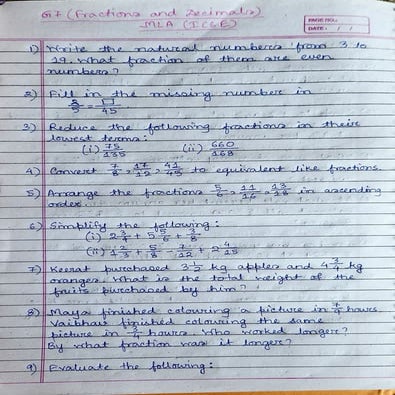 G7 (Fractions and Decimals)
MLA (ICSE)
PAGE NO.:
DATE: / /
1) Write the natural numbers from 3 to
19. What fraction of them are even
numbers?
2) Fill in the missing number in
= □/45
3) Reduce the following fractions in their
lowest terms:
(i) 75/135 (ii) 660/168
4) Convert 7/8, 17/12, 41/45 to equivalent like fractions.
5) Arrange the fractions 5/6, 11/16, 13/18 in ascending
order.
6) Simplify the following:
(i) 2 3/4 + 5 5/6 + 3/8
(ii) 1 2/3 + 5/8 + 7/12 + 2 4/15
7) Keerat purchased 3 1/2 kg apples and 4 3/4 kg
oranges. What is the total weight of the
fruits purchased by him?
8) Maya finished colouring a picture in hours.
Vaibhav finished colouring the same
picture in hours. Who worked longer?
By what fraction was it longer?
9) Evaluate the following: